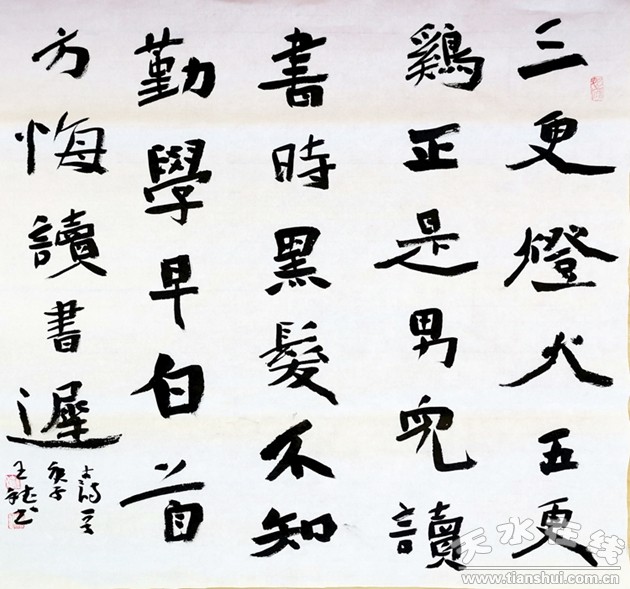 三更燈火五更
鷄正是男兒讀
書時黑髮不知
勤學早白首
方悔讀書遲
古詩一首
庚子
天水在线
www.tianshui.com.cn